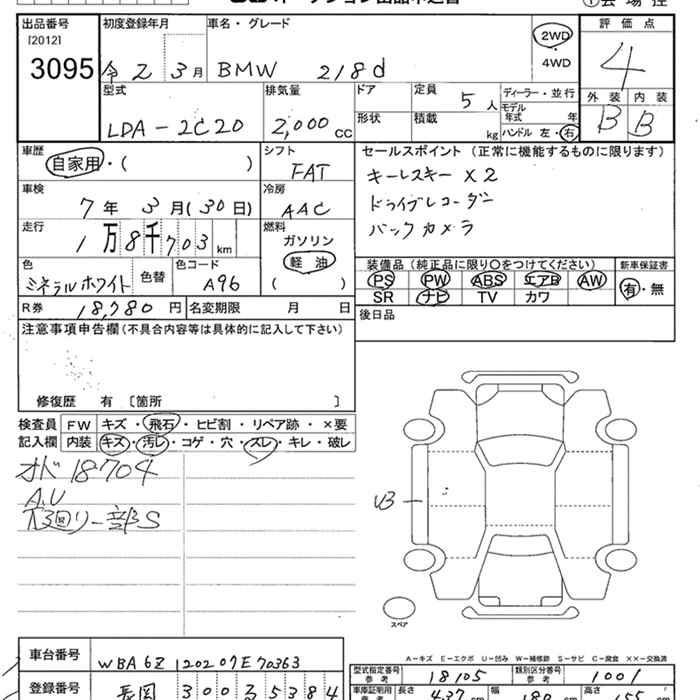 出品番号 初度登録年月 車名・グレード 評価点
[2012]
3095 令2 3月 BMW 218d 2WD・4WD 4
型式 排気量 ドア 定員 5人 ディーラー・並行 外装 内装
モデル年式 年
LDA-2C20 2,000cc 形状 積載 kg ハンドル 左・右 B B
車歴 シフト セールスポイント(正常に機能するものに限ります)
自家用・( ) FAT キーレスキー×2
車検 冷房 ドライブレコーダー
7年 3月(30日) AAC バックカメラ
走行 燃料
1万8千703km ガソリン
軽油
色 色替 色コード ( ) 装備品(純正品に限り○をつけてください) 新車保証書
ミネラルホワイト A96 PS PW ABS エアB AW 有・無
SR ナビ TV カワ
R券 18,780円 名変期限 月 日
後日品
注意事項申告欄(不具合内容等は具体的に記入して下さい)
修復歴 有 〔箇所 〕
検査員 FW キズ・飛石・ヒビ割・リペア跡・×要
記入欄 内装 キズ・汚レ・コゲ・穴・スレ・キレ・破レ
オド18704
A.U
下回リ一部S
スペア
A-キズ E-エクボ U-凹み W-補修跡 S-サビ C-腐食 XX-交換済
車台番号 WBA6Z120207E70363
型式指定番号 参考 18105 類別区分番号 参考 1001
登録番号 長岡 300 5384
車庫証明用 参考 長さ 437cm 幅 180cm 高さ 155cm